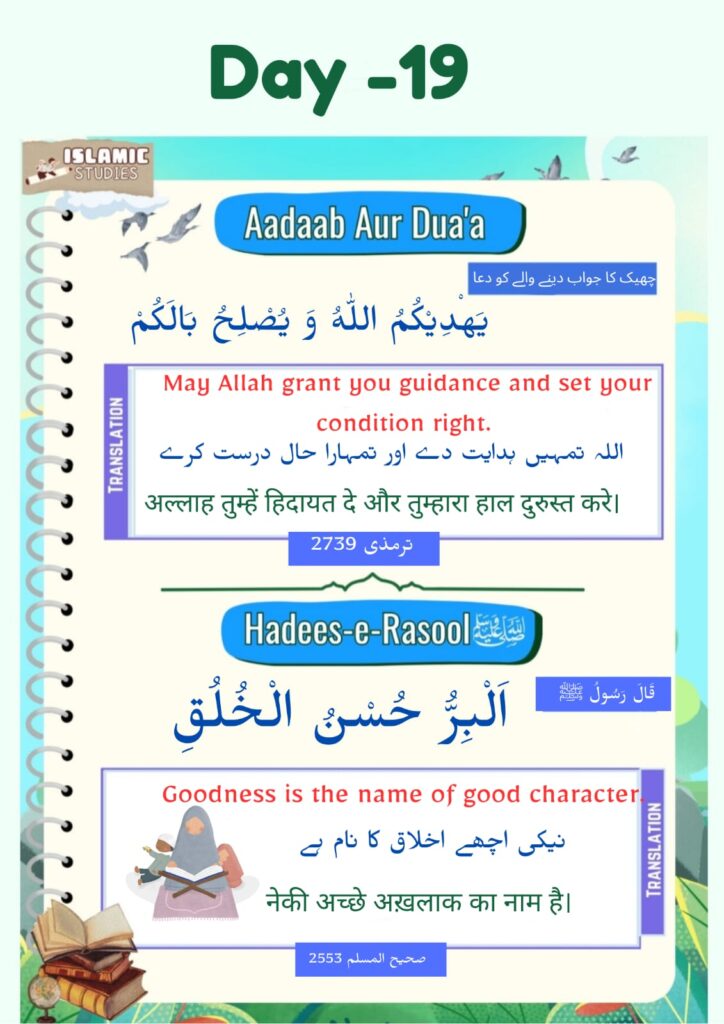 Day -19
ISLAMIC
STUDIES
Aadaab Aur Dua'a
چھیک کا جواب دینے والے کو دعا
يَهْدِيْكُمُ اللّٰهُ وَ يُصْلِحُ بَالَكُمْ
TRANSLATION
May Allah grant you guidance and set your
condition right.
اللہ تمہیں ہدایت دے اور تمہارا حال درست کرے
अल्लाह तुम्हें हिदायत दे और तुम्हारा हाल दुरुस्त करे।
ترمذی 2739
Hadees-e-Rasool ﷺ
قَالَ رَسُولُ ﷺ
اَلْبِرُّ حُسْنُ الْخُلُقِ
Goodness is the name of good character.
نیکی اچھے اخلاق کا نام ہے
नेकी अच्छे अख़लाक का नाम है।
TRANSLATION
صحیح المسلم 2553